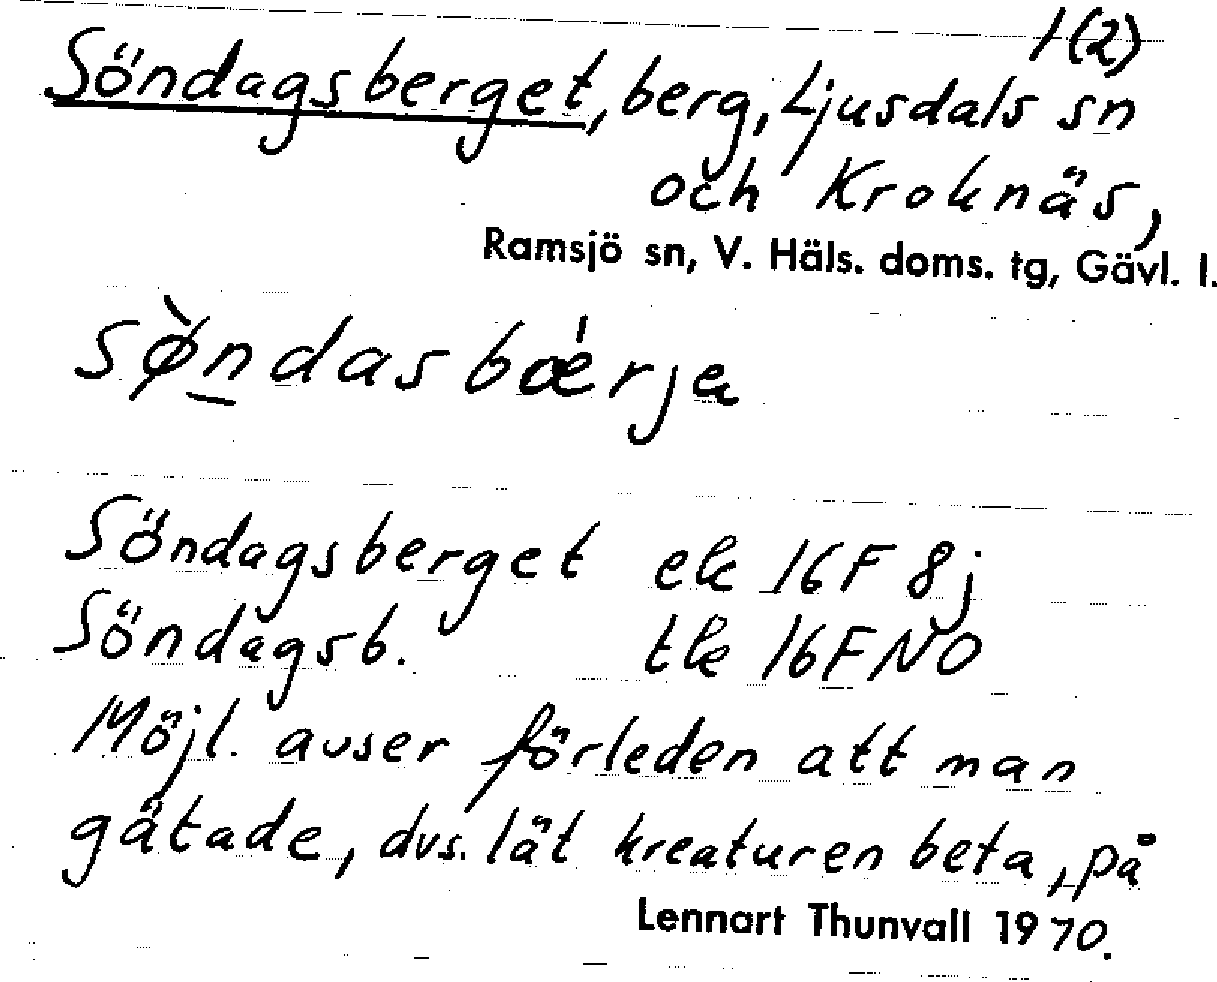 1(2)
Söndagsberget, berg, Ljusdals sn
och Kroknäs,
Ramsjö sn, V. Häls. doms. tg, Gävl. l.
sø̀n̲dasbǽrja
Söndagsberget ek 16F 8j
Söndagsb. tk 16F NO
Möjl. avser förleden att man
gätade, dvs. lät kreaturen beta, på
Lennart Thunvall 1970.